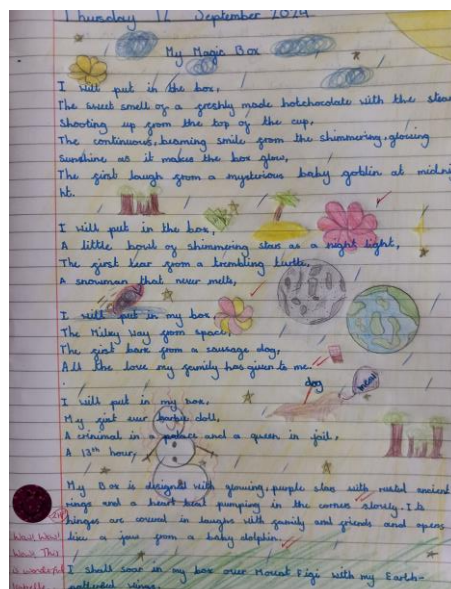 Thursday 12 September 2024
My Magic Box
I will put in the box,
The sweet smell of a freshly made hotchocolate with the steam
Shooting up from the top of the cup,
The continuous, beaming smile from the shimmering, glowing
Sunshine as it makes the box glow,
The first laugh from a mysterious baby goblin at midnig
ht.
I will put in the box,
A little bowl of shimmering stars as a night light,
The first tear from a trembling turtle,
A snowman that never melts,
I will put in my box
The Milky Way from space,
The first bark from a sausage dog,
All the love my family has given to me.
dog
I will put in my box,
My first ever barbie doll,
A criminal in a palace and a queen in jail,
A 13th hour,
My Box is designed with glowing, purple stars with metal ancient
rings and a heart beat pumping in the corners slowly. Its
hinges are covered in laughs with family and friends and opens
like a jaw from a baby dolphin.
Wow! Wow!
Wow! This
is wonderful
I shall soar in my box over Mount Figi with my Earth-
patterned wings,